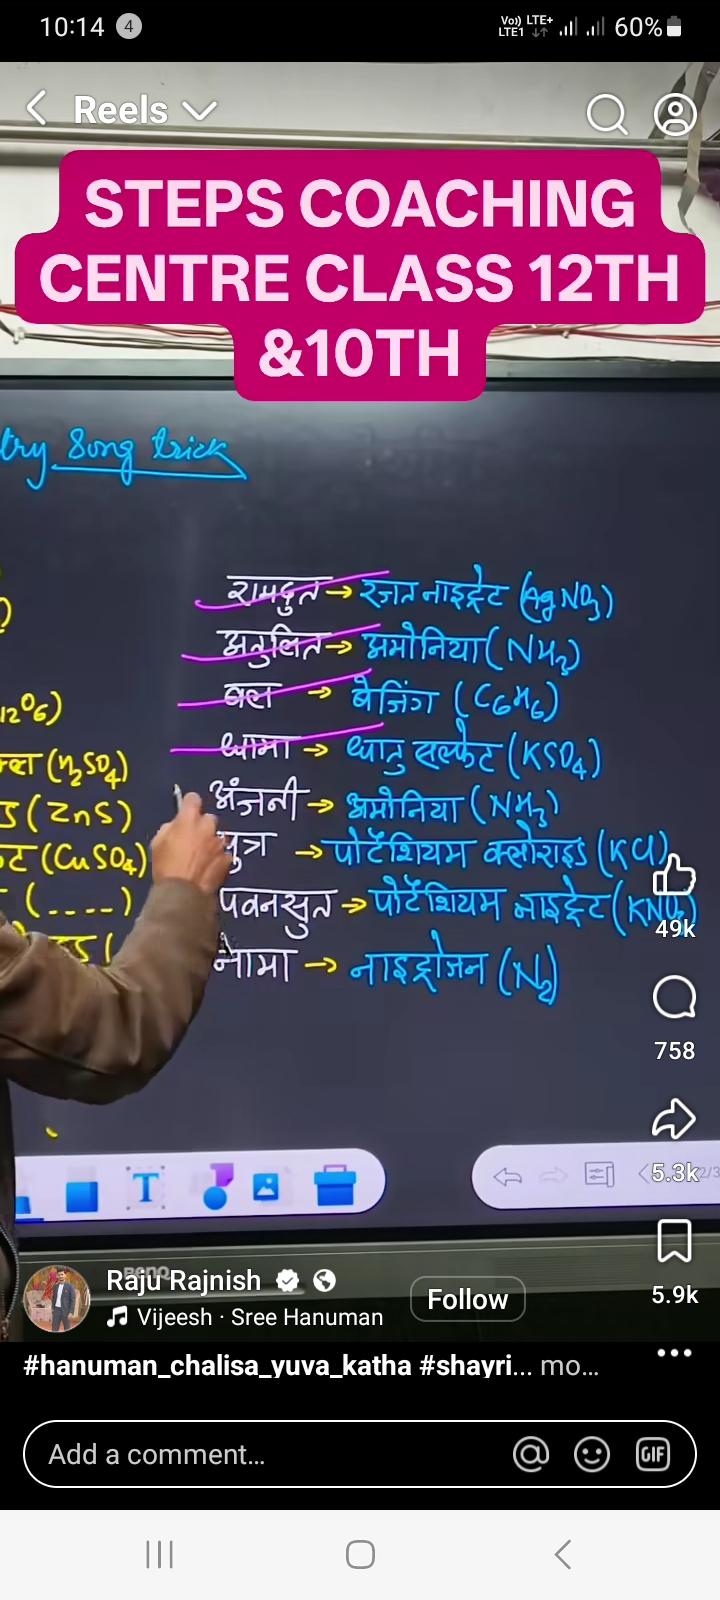 10:14 4 Vo)) LTE+ LTE1 60%
Reels
STEPS COACHING
CENTRE CLASS 12TH
&10TH
try Song trick
रामदुत → रजत नाइट्रेट (AgNO3)
अतुलित → अमोनिया (NH3)
बल → बेजिंग (C6H6)
धामा → धातु सल्फेट (KSO4)
अंजनी → अमोनिया (NH3)
पुत्र → पोटॅशियम क्लोराइड (KCl)
पवनसुत → पोटॅशियम नाइट्रेट (KNO3)
नामा → नाइट्रोजन (N2)
12O6)
(H2SO4)
(ZnS)
(CuSO4)
(----)
49k
758
5.3k 2/3
5.9k
BenQ
Raju Rajnish
Vijeesh · Sree Hanuman
Follow
#hanuman_chalisa_yuva_katha #shayri... mo...
Add a comment...
GIF